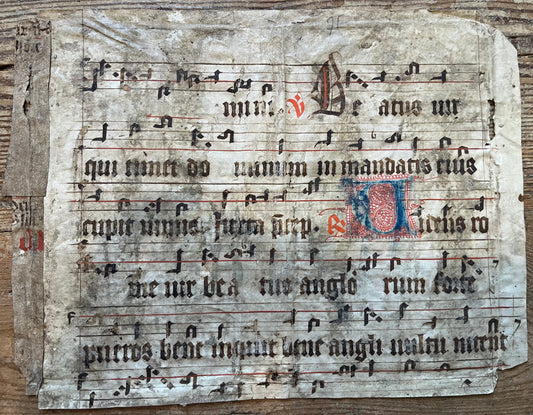 V Be atus uir
qui timet do minum in mandatis eius
cupit nimis R Videns ro
me uir bea tus anglo rum forte
pueros bene inquit bene angli uultu nitent